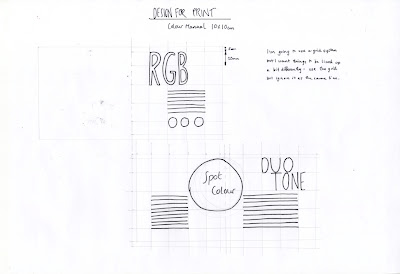 DESIGN FOR PRINT
Colour Manual 10x10cm
RGB
I'm going to use a grid system
but I want things to be lined up
a bit differently - use the grid
but ignore it at the same time.
Spot
Colour
DUO
TONE